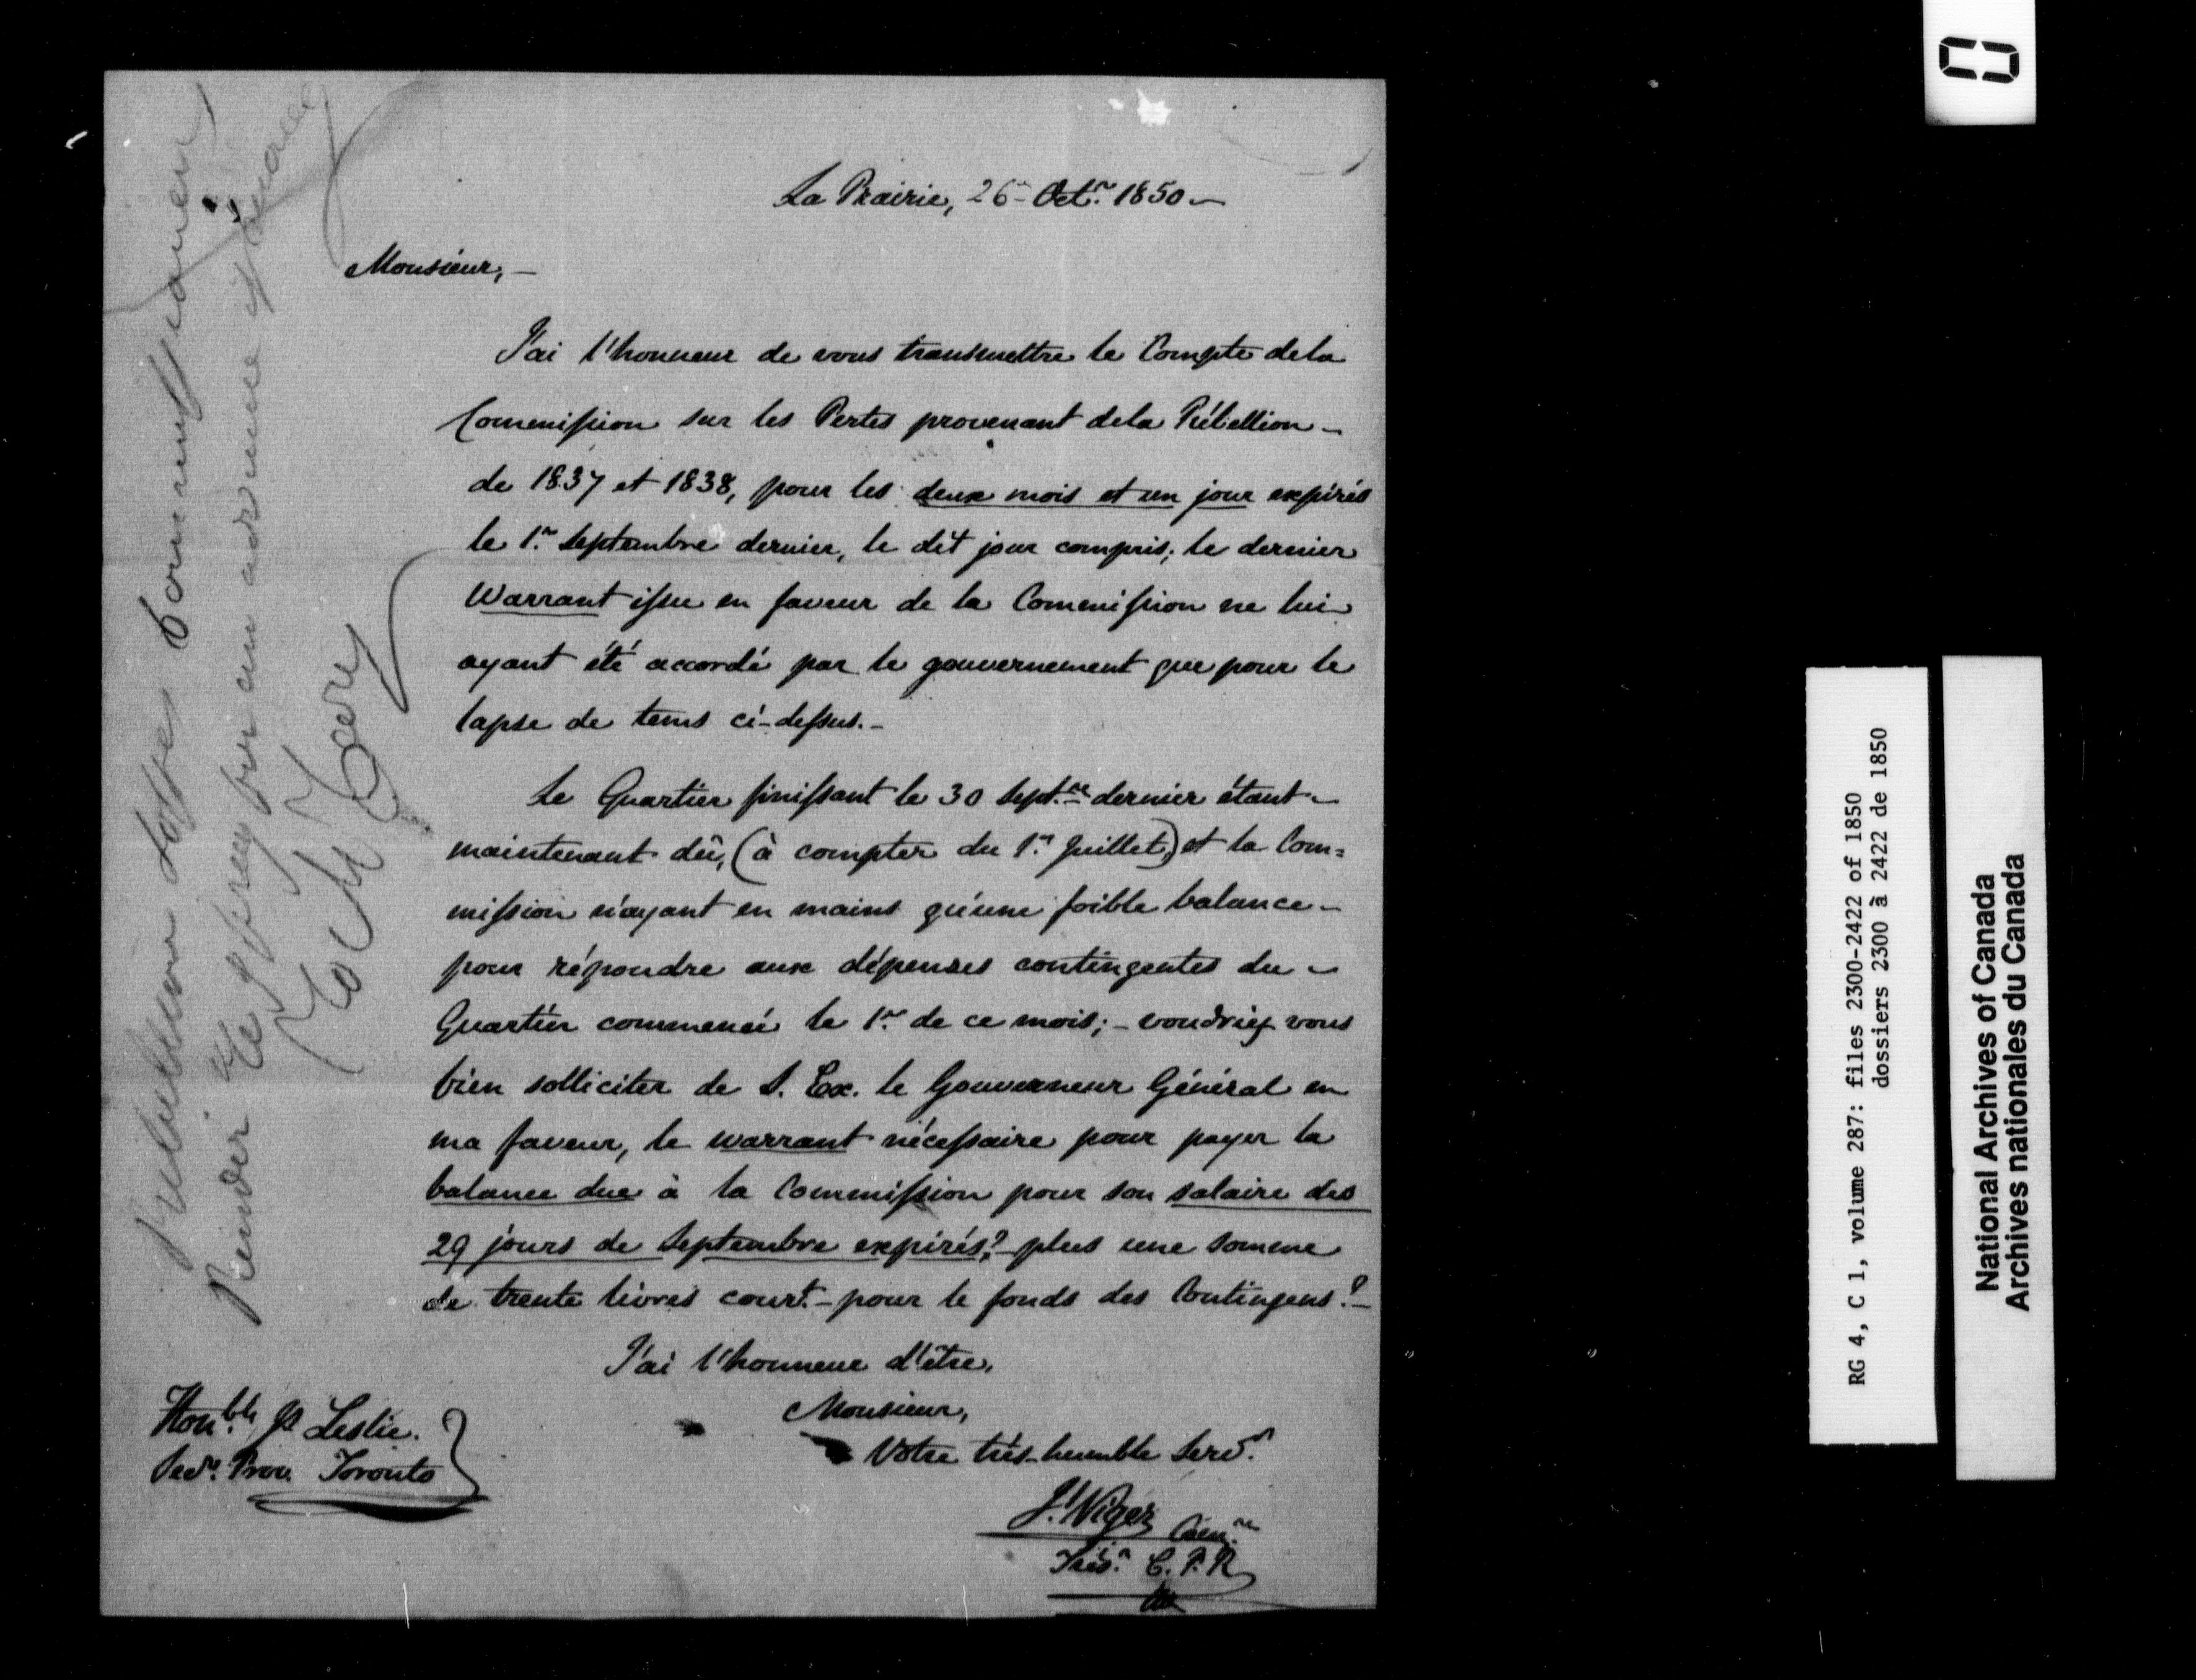 La Prairie, 26 - Octr. 1850 -
Monsieur, -
J'ai l'honneur de vous transmettre le Compte dela
Commission sur les Pertes provenant dela Rébellion -
de 1837 et 1838, pour les deux mois et un jour expirés
le 1r. Septembre dernier, le dit jour compris; le dernier
Warrant issu en faveur de la Commission ne lui
ayant été accordé par le gouvernement que pour le
lapse de tems ci-dessus. -
Le Quartier finissant le 30 Septre dernier étant -
maintenant dû, (à compter du 1r. Juillet,) et la Com=
mission n'ayant en mains qu'une foible balance -
pour répondre aux dépenses contingentes du -
Quartier commencé le 1r. de ce mois; - voudriez vous
bien solliciter de S. Ex. le Gouverneur Général en
ma faveur, le warrant nécessaire pour payer la
balance due à la Commission pour son salaire des
29 jours de Septembre expirés? plus une somme
de trente livres court. - pour le fonds des Contingens? -
J'ai l'honneur d'être,
Monsieur,
Votre très-humble Servr.
J. Viger
Trés. C. P. R
Honble Js Leslie.
Secr. Prov. Toronto
Rebellion Losses Commissioners
RG 4, C 1, volume 287: files 2300-2422 of 1850
dossiers 2300 à 2422 de 1850
National Archives of Canada
Archives nationales du Canada